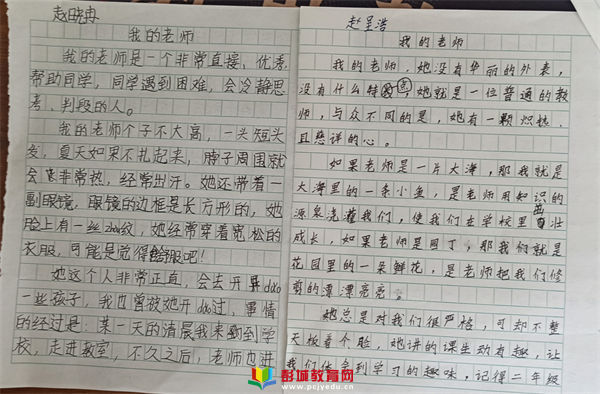 赵晓冉
我的老师
我的老师是一个非常直接、优秀,
帮助同学,同学遇到困难,会冷静思
考、判段的人。
我的老师个子不大高,一头短头
发,夏天如果不扎起来,脖子周围就
会非常热,经常出汗。她还带着一
副眼镜,眼镜的边框是长方形的,她
脸上有一丝zhou纹,她经常穿着宽松的
衣服,可能是觉得舒服吧!
她这个人非常正直,会去开dao
一些孩子,我也曾被她开dao过,事情
的经过是:某一天的清晨我来到学
校,走进教室,不久之后,老师也进
赵呈浩
我的老师
我的老师,她没有华丽的外表,
没有什么特点,她就是一位普通的教
师,与众不同的是,她有一颗炽热
且慈详的心。
如果老师是一片大海,那我就是
大海里的一条小鱼,是老师用知识的
源泉浇灌我们,使我们在学校里茁壮
成长,如果老师是园丁,那我们就是
花园里的一朵鲜花,是老师把我们修
剪的漂漂亮亮。
她总是对我们很严格,可却不整
天板着个脸,她讲的课生动有趣,让
我们体会到学习的趣味,记得二年级
彭城教育网
www.pcjyedu.cn